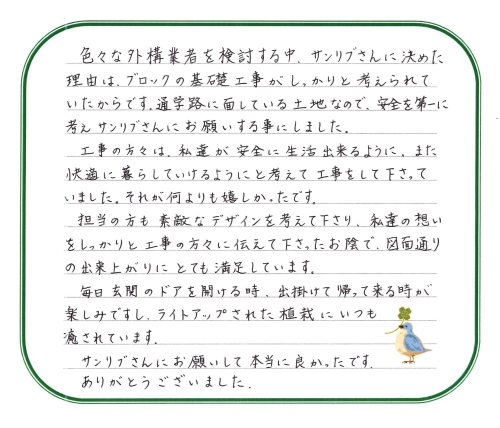 色々な外構業者を検討する中、サンリブさんに決めた
理由は、ブロックの基礎工事がしっかりと考えられて
いたからです。通学路に面している土地なので、安全を第一に
考えサンリブさんにお願いする事にしました。
工事の方々は、私達が安全に生活出来るように、また
快適に暮らしていけるようにと考えて工事をして下さって
いました。それが何よりも嬉しかったです。
担当の方も素敵なデザインを考えて下さり、私達の想い
をしっかりと工事の方々に伝えて下さったお陰で、図面通り
の出来上がりにとても満足しています。
毎日玄関のドアを開ける時、出掛けて帰って来る時が
楽しみですし、ライトアップされた植栽にいつも
癒されています。
サンリブさんにお願いして本当に良かったです。
ありがとうございました。